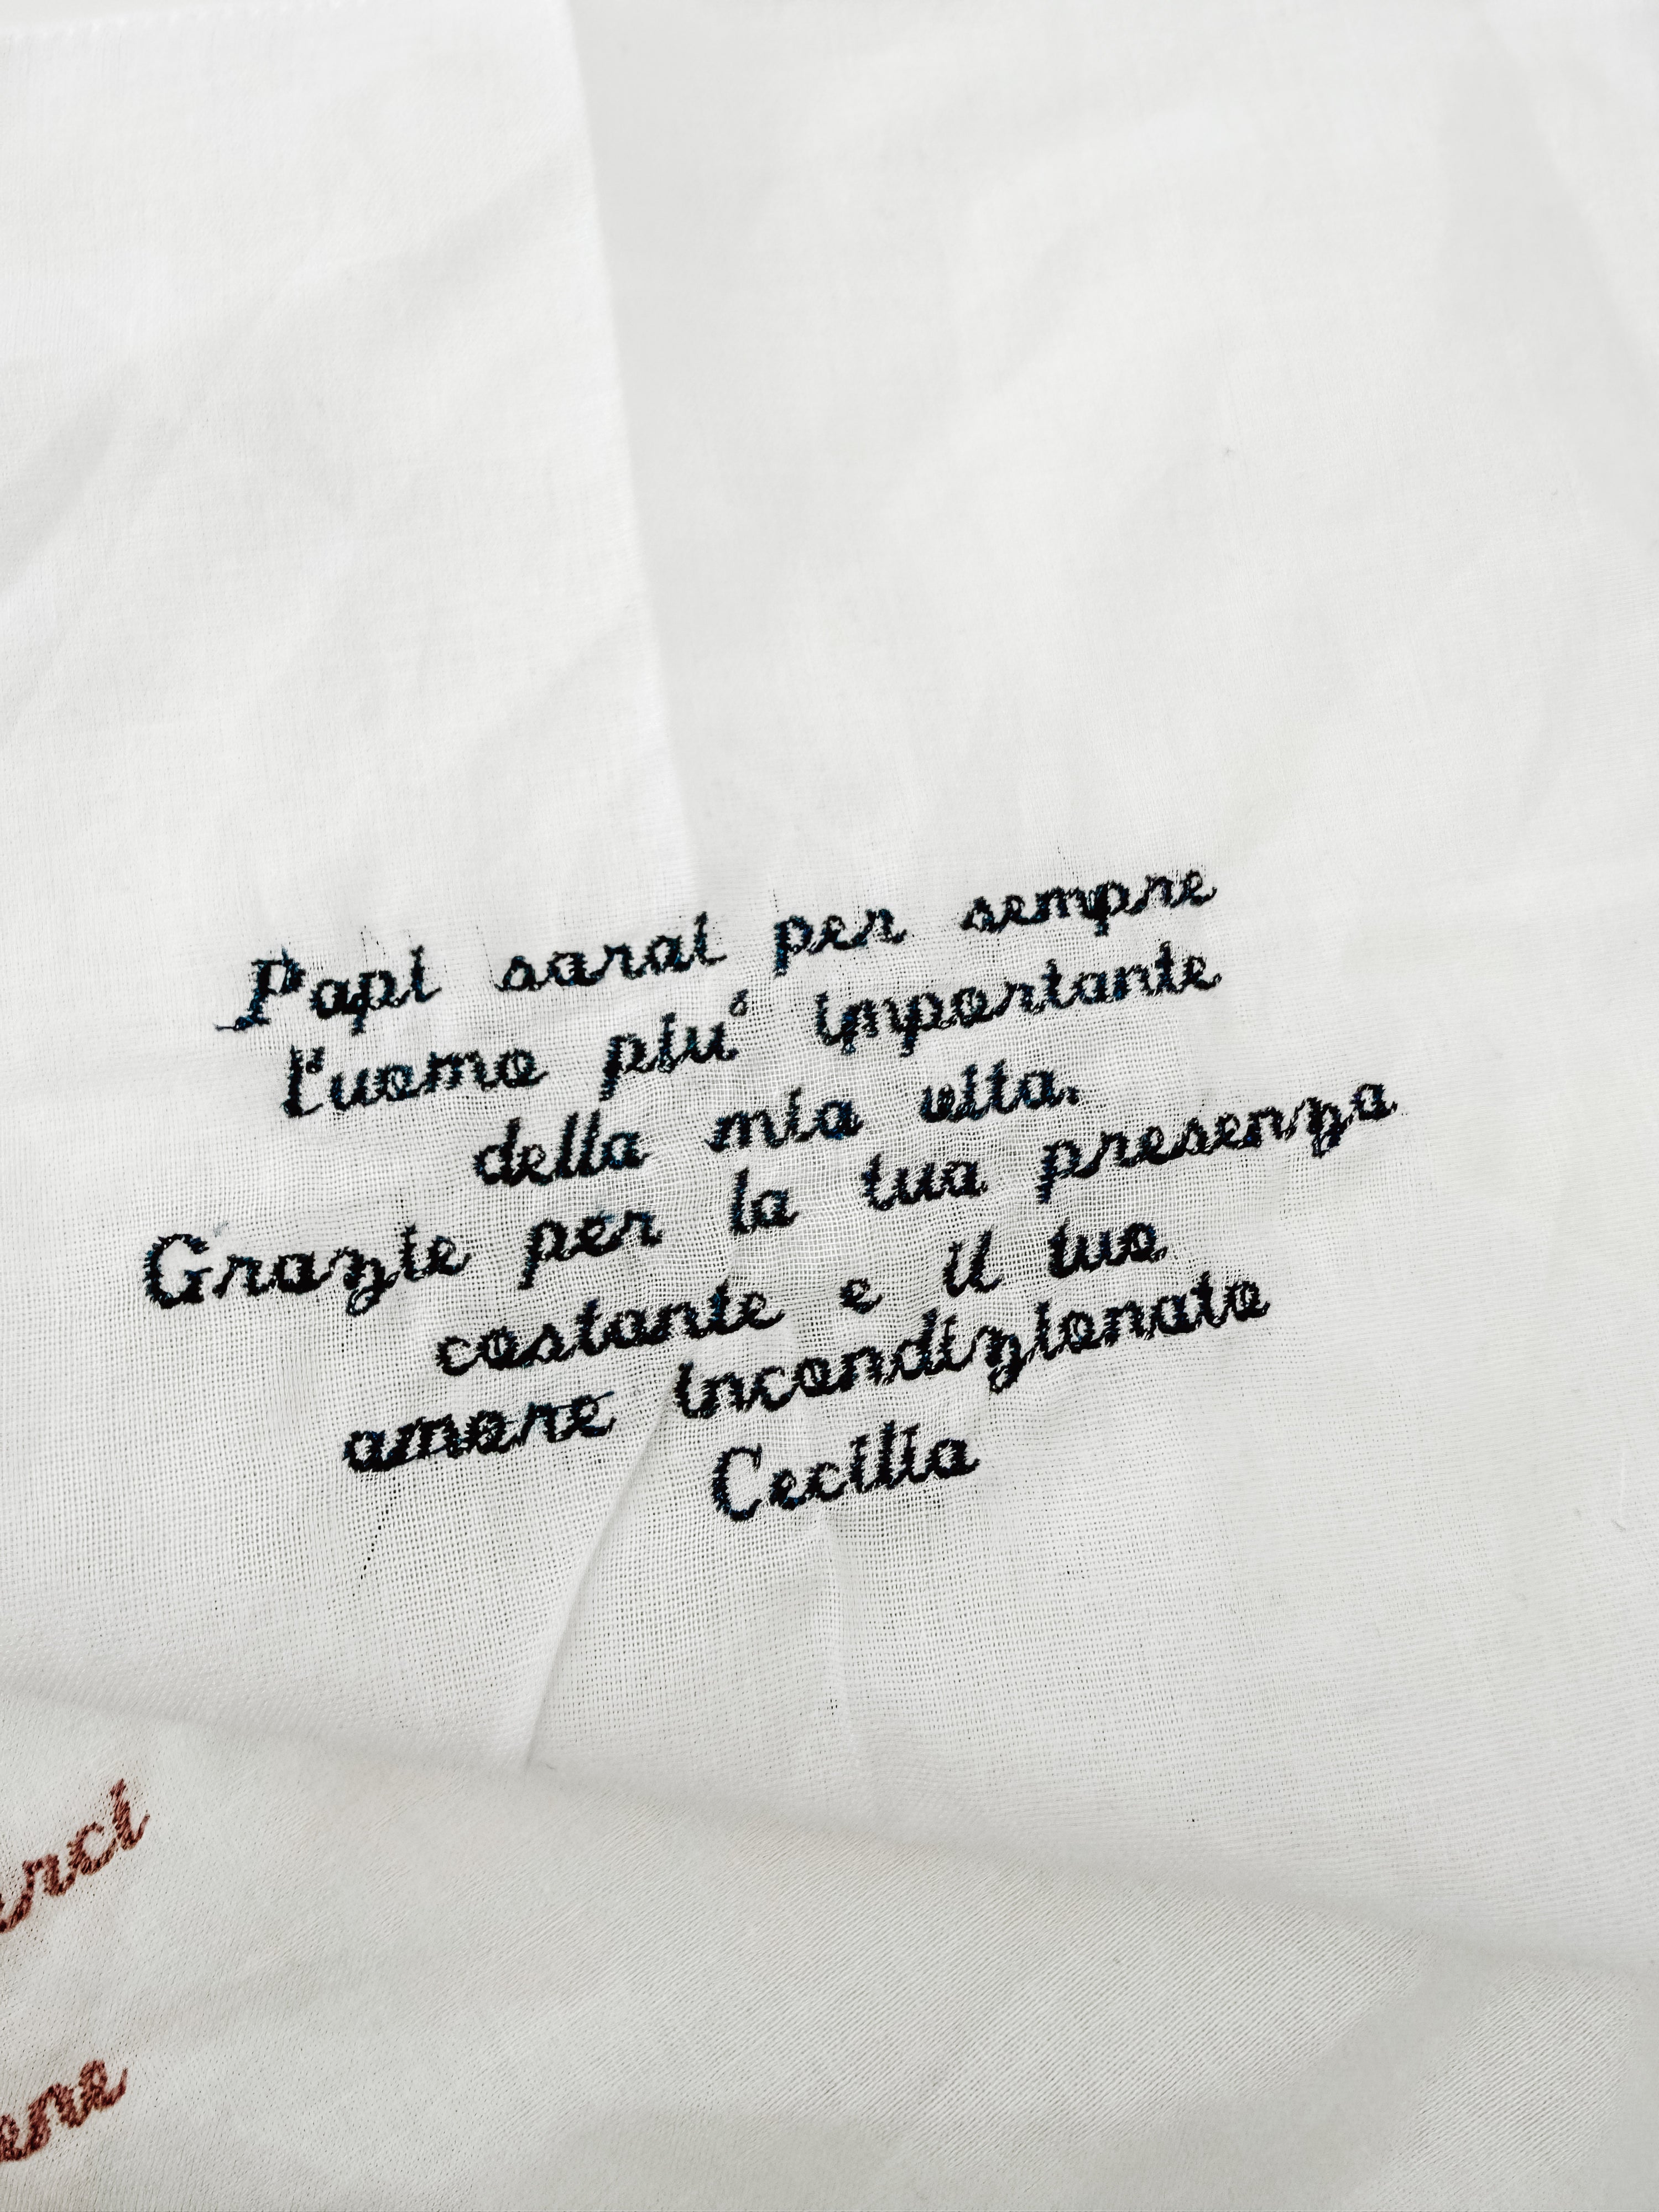 Papi sarai per sempre
l'uomo piu' importante
della mia vita.
Grazie per la tua presenza
costante e il tuo
amore incondizionato
Cecilia